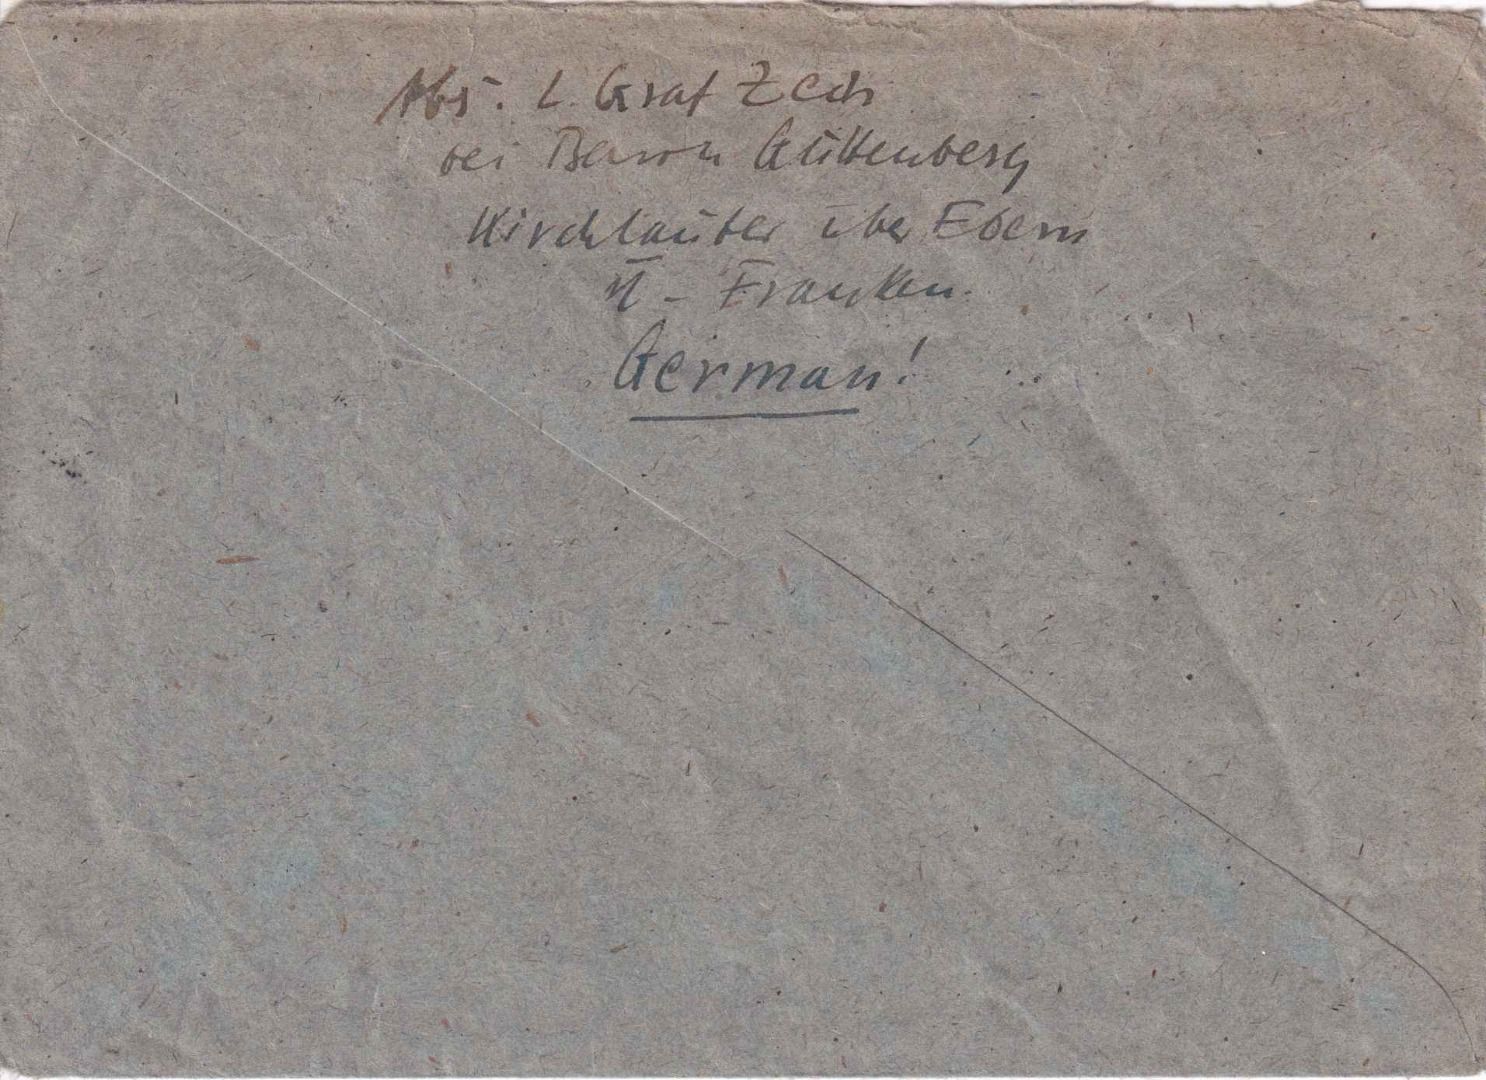 Abs. L. Graf Zech
bei Baron Guttenberg
Kirchlauter über Ebern
U - Franken.
German!